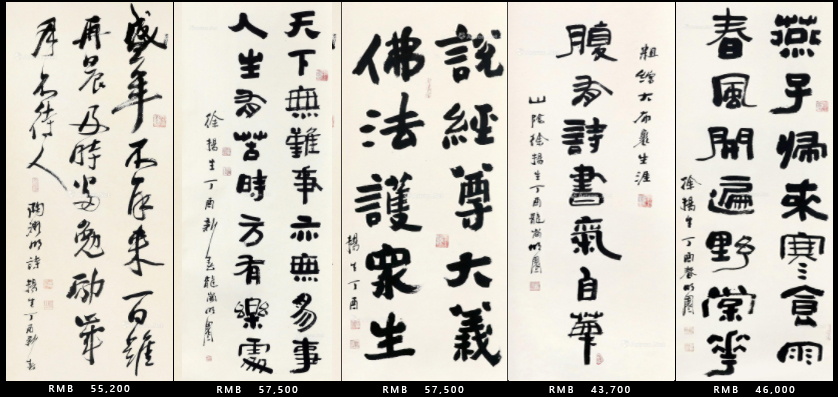 盛年不再來一日難
再晨及時當勉勵歲
月不待人
陶淵明詩 揚生丁酉新春
天下無難事亦無易事
人生有苦時方有樂處
徐揚生丁酉新春龍崗明園
說經尊大義
佛法護衆生
揚生丁酉
粗繒大布裹生涯
腹有詩書氣自華
山陰徐揚生丁酉龍崗明園
燕子歸來寒食雨
春風開遍野棠花
徐揚生丁酉春明園
RMB 55,200
RMB 57,500
RMB 57,500
RMB 43,700
RMB 46,000